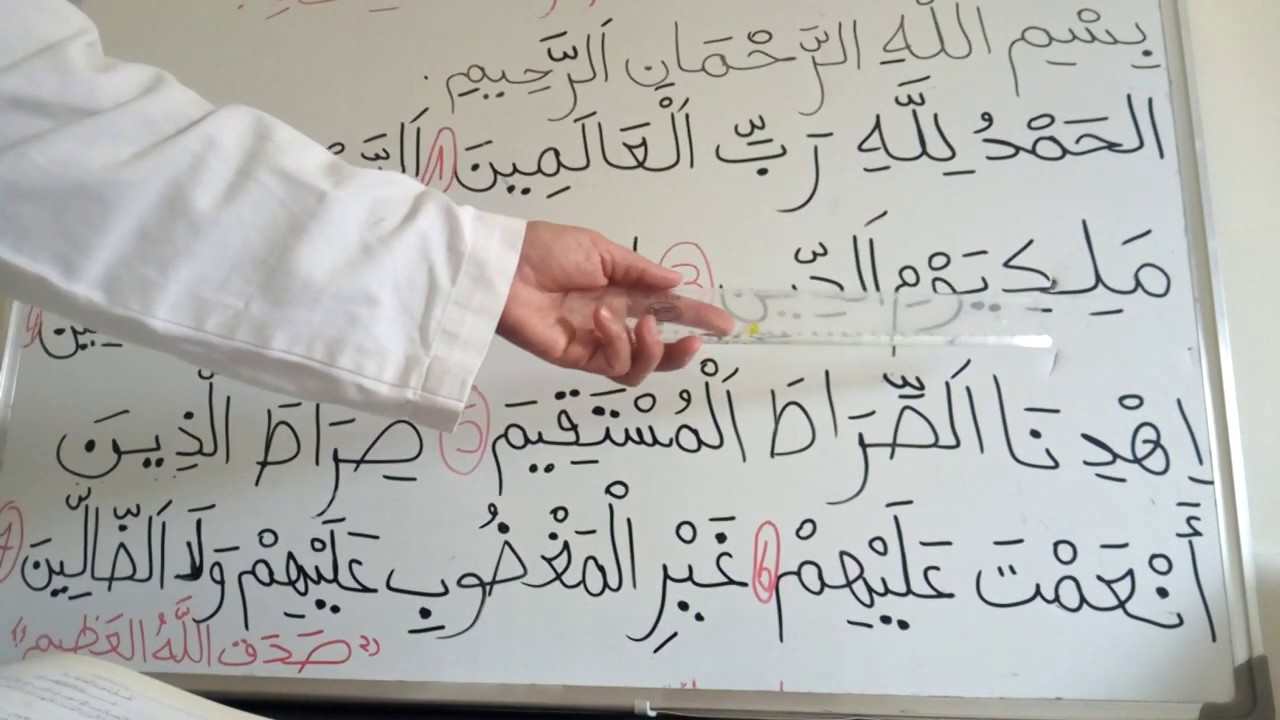 بِسْمِ اللَّهِ الرَّحْمَانِ اَلرَّحِيمِ.
الحَمْدُ لِلَّهِ رَبِّ اَلْعَالَمِينَ 1
مَلِكِ يَوْمِ اَلدِّينِ 3
4
اِهْدِنَا اَلصِّرَاطَ اَلْمُسْتَقِيمَ 5 صِرَاطَ الْذِينَ
أَنْعَمْتَ عَلَيْهِمْ 6 غَيْرِ الْمَغْضُوبِ عَلَيْهِمْ وَلَا اَلضَّالِّينَ 7
«صَدَقَ اللَّهُ العَظِيم»